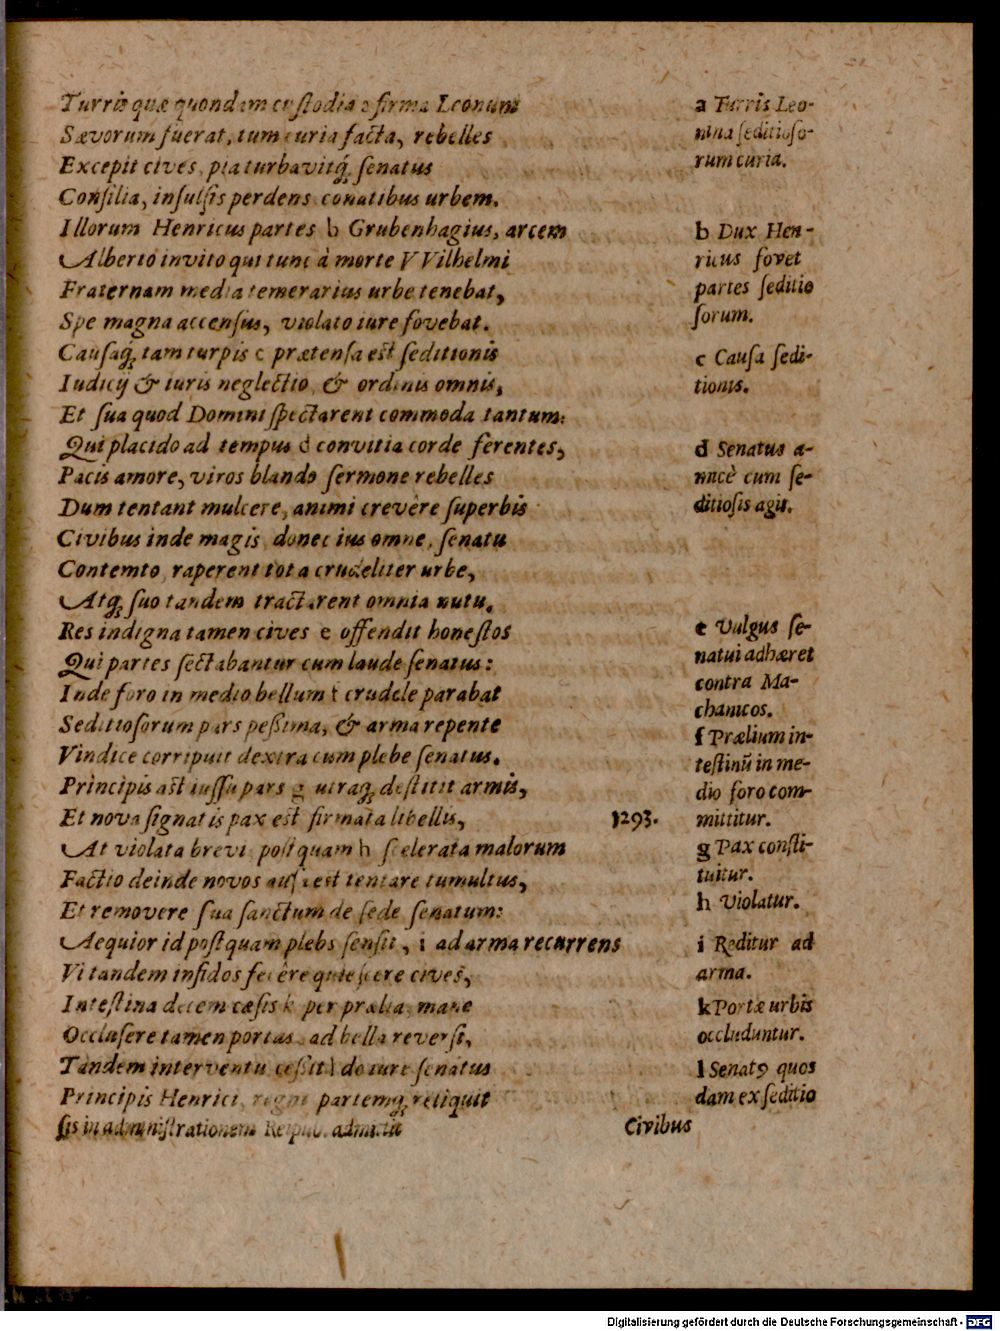 Turris quæ quondam custodia a firma Leonum
Sævorum fuerat, tum curia facta, rebelles
Excepit cives, pia turbavitq́; senatus
Consilia, insulsis perdens conatibus urbem.
Illorum Henricus partes b Grubenhagius, arcem
Alberto invito qui tunc à morte VVilhelmi
Fraternam media temerarius urbe tenebat,
Spe magna accensus, violato iure fovebat.
Causaq́; tam turpis c prætensa est seditionis
Iudicij & iuris neglectio & ordinis omnis,
Et sua quod Domini spectarent commoda tantum:
Qui placido ad tempus d convitia corde ferentes,
Pacis amore, viros blando sermone rebelles
Dum tentant mulcere, animi crevêre superbis
Civibus inde magis, donec ius omne, senatu
Contemto, raperent tota crudeliter urbe,
Atq́; suo tandem tractarent omnia nutu.
Res indigna tamen cives e offendit honestos
Qui partes sectabantur cum laude senatus:
Inde foro in medio bellum f crudele parabat
Seditiosorum pars peßima, & arma repente
Vindice corripuit dextra cum plebe senatus.
Principis ast iussu pars g utraq́; destitit armis,
Et nova signatis pax est firmata libellis, 1293.
At violata brevi postquam h scelerata malorum
Factio deinde novos ausa est tentare tumultus,
Et removere sua sanctum de sede senatum:
Aequior id postquam plebs sensit, i ad arma recurrens
Vi tandem infidos fecêre quiescere cives,
Intestina decem cæsis k per prælia, mane
Occlusere tamen portas ad bella reversi,
Tandem interventu ceßit l de iure senatus
Principis Henrici, regni partemq́; reliquit
a Turris Leo-
nina seditioso-
rum curia.
b Dux Hen-
ricus fovet
partes seditio
sorum.
c Causa sedi-
tionis.
d Senatus a-
micè cum se-
ditiosis agit.
e Vulgus se-
natui adhæret
contra Ma-
chanicos.
f Prælium in-
testinũ in me-
dio foro com-
mittitur.
g Pax consti-
tuitur.
h Violatur.
i Reditur ad
arma.
k Portæ urbis
occluduntur.
l Senatꝰ quos
dam ex seditio
sis in administrationem Reipub. admittit
Civibus
Digitalisierung gefördert durch die Deutsche Forschungsgemeinschaft - DFG